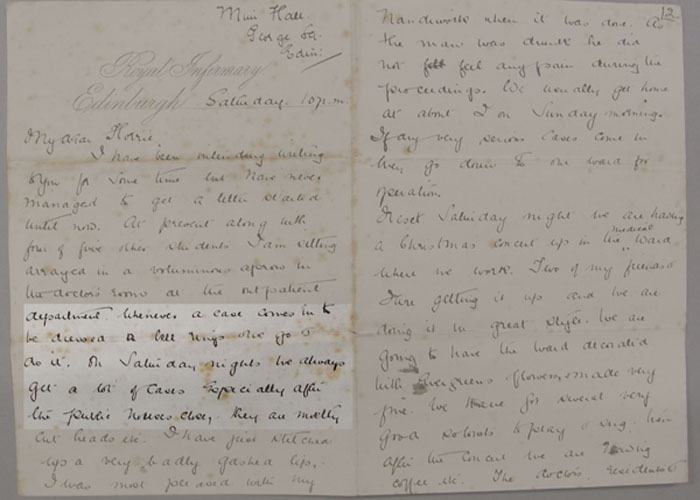 Muir Hall.
George Sq.
Edin:
Royal Infirmary
Edinburgh Saturday. 10 p.m.
My dear Florrie
I have been intending writing
to you for some time but have never
managed to get a letter started
until now. At present along with
four or five other students I am sitting
arrayed in a voluminous apron in
the doctors room at the out patient
department. Whenever a case comes in to
be dressed a bell rings & we go &
do it. On Saturday nights we always
get a lot of cases especially after
the public houses close, they are mostly
cut heads etc. I have just stitched
up a very badly gashed lip,
I was most pleased with my
12.
handiwork when it was done. As
the man was drunk he did
not feel any pain during the
proceedings. We usually get home
at about 1 on Sunday mornings.
If any very serious cases come in
they go down to our ward for
operation
Next Saturday night we are having
a Christmas concert up in the medical ward
where we work. Two of my friends &
I are getting it up and we are
doing it in great style. We are
going to have the ward decorated
with evergreens flowers, & made very
fine. We have for several very
good soloists to play & sing.
After the concert we are having
coffee etc. The doctors, residents